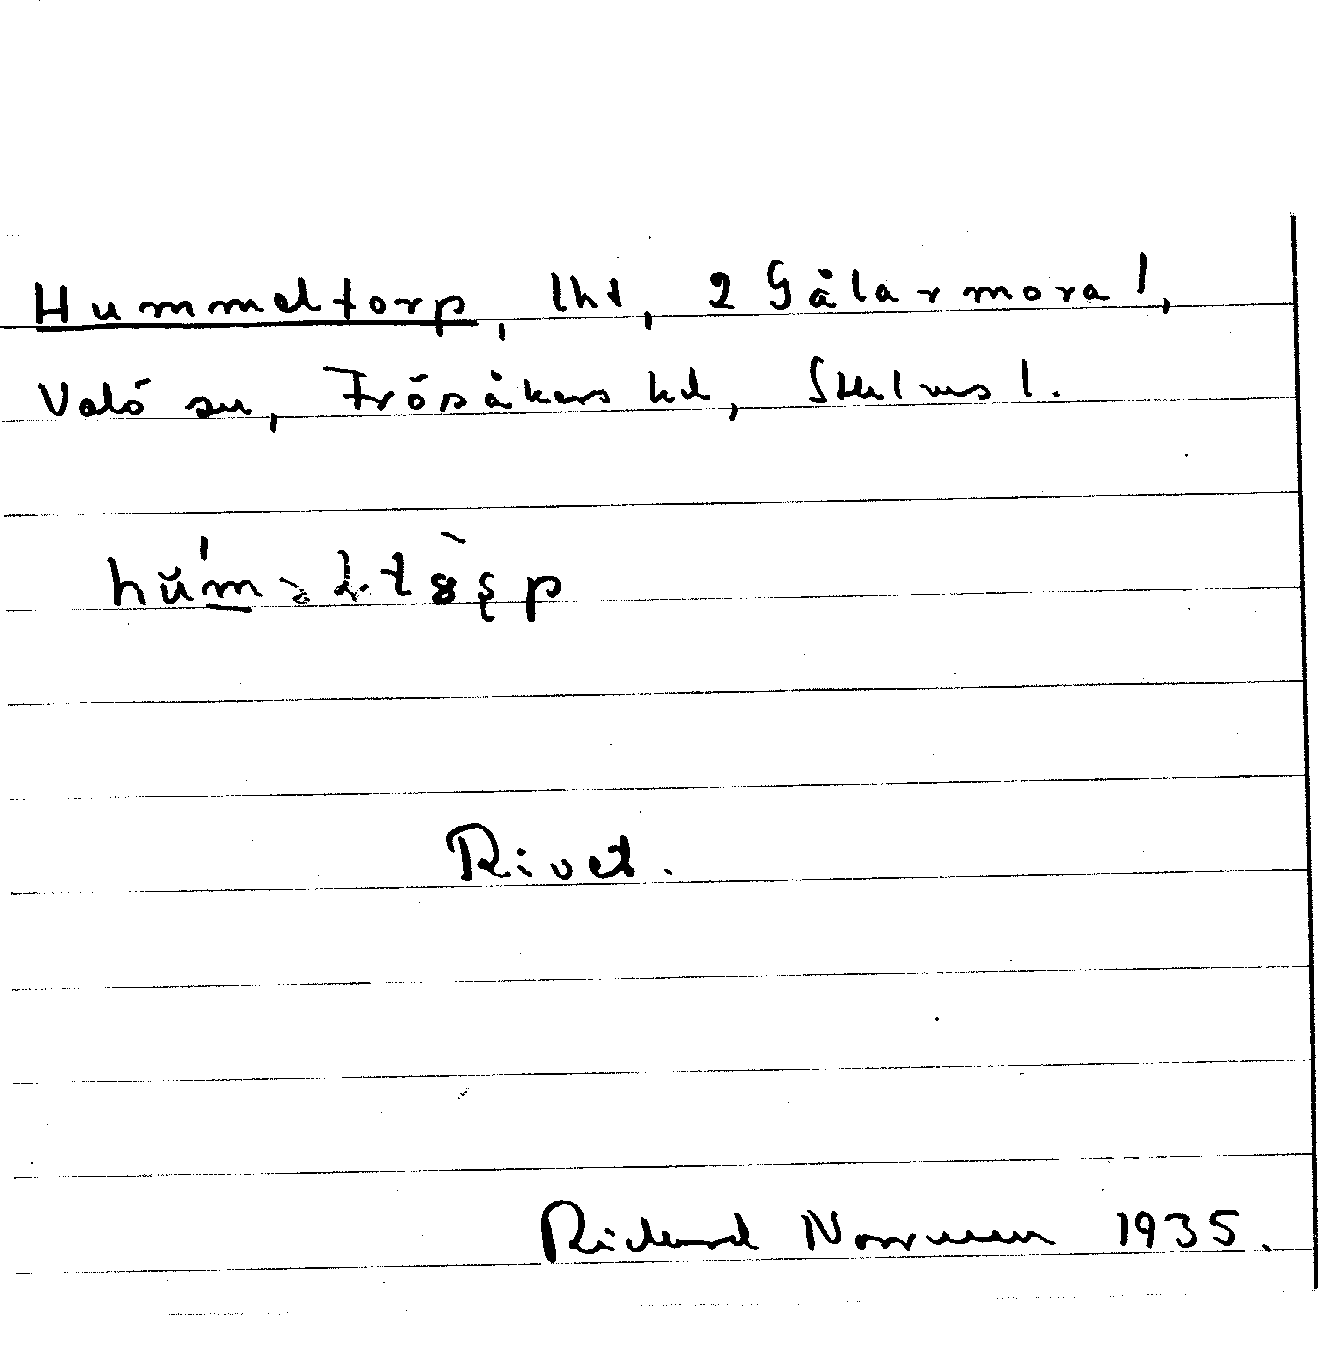 Hummeltorp, lht, 2 Gålarmora!,
Valö sn, Frösåkers hd, Sthlms l.
Rivet.
Rickard Norrman 1935.